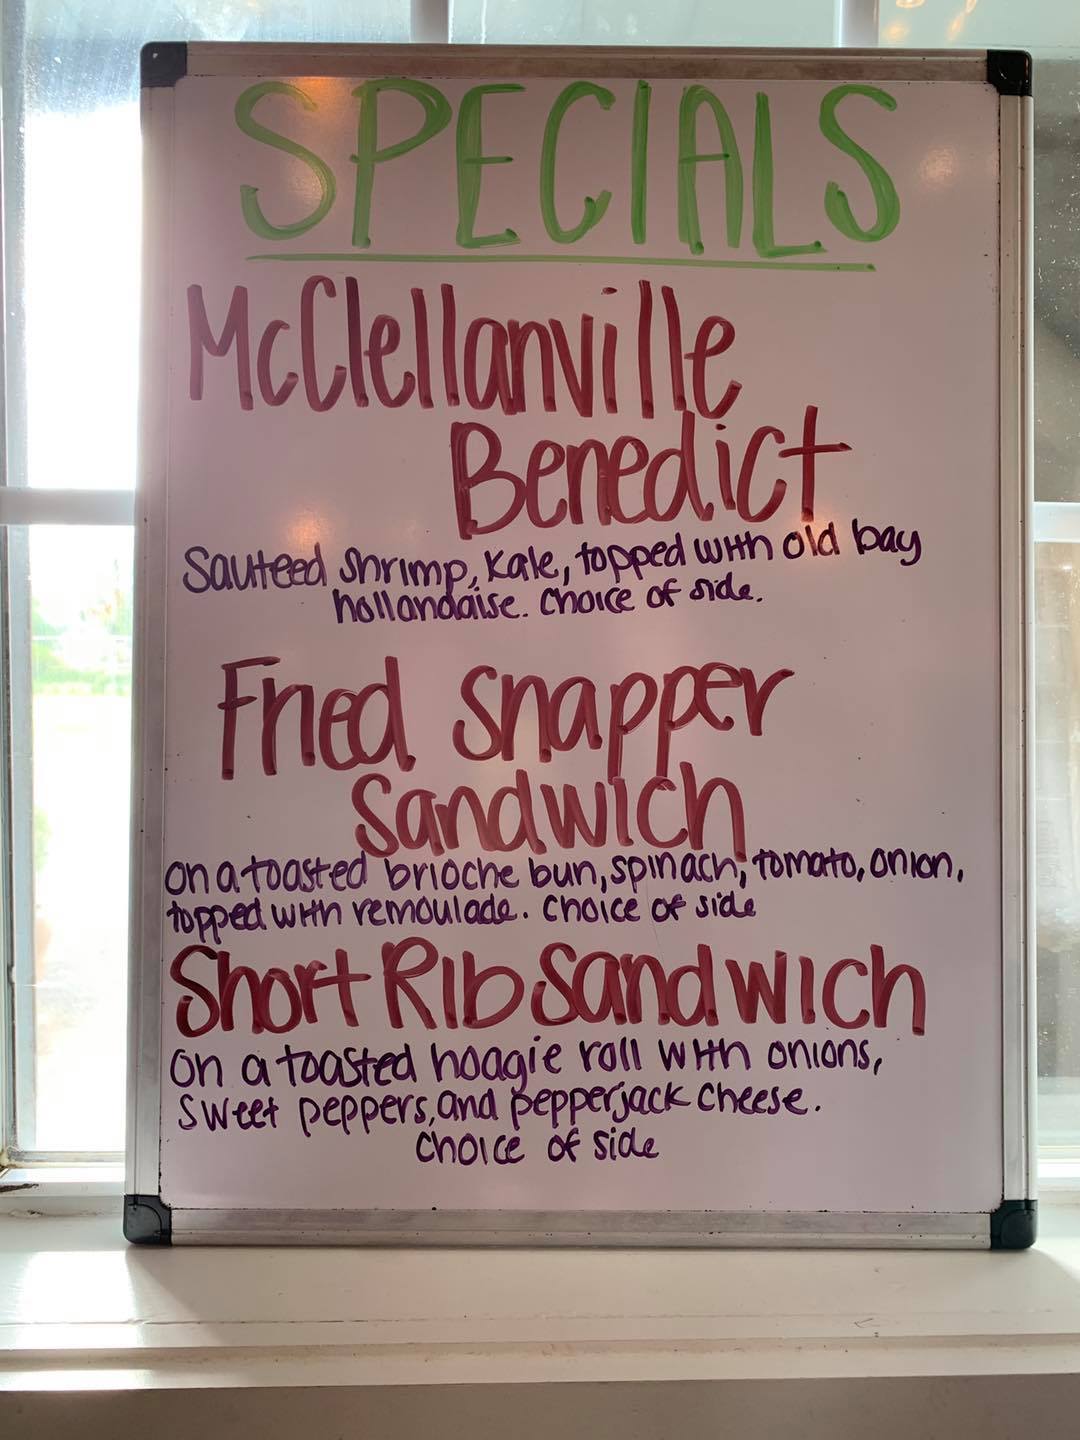 SPECIALS
McClellanville
Benedict
Sauteed shrimp, Kale, topped with old bay
hollandaise. Choice of side.
Fried Snapper
Sandwich
on a toasted brioche bun, spinach, tomato, onion,
topped with remoulade. Choice of side
Short Rib Sandwich
on a toasted hoagie roll with onions,
sweet peppers, and pepperjack cheese.
Choice of side